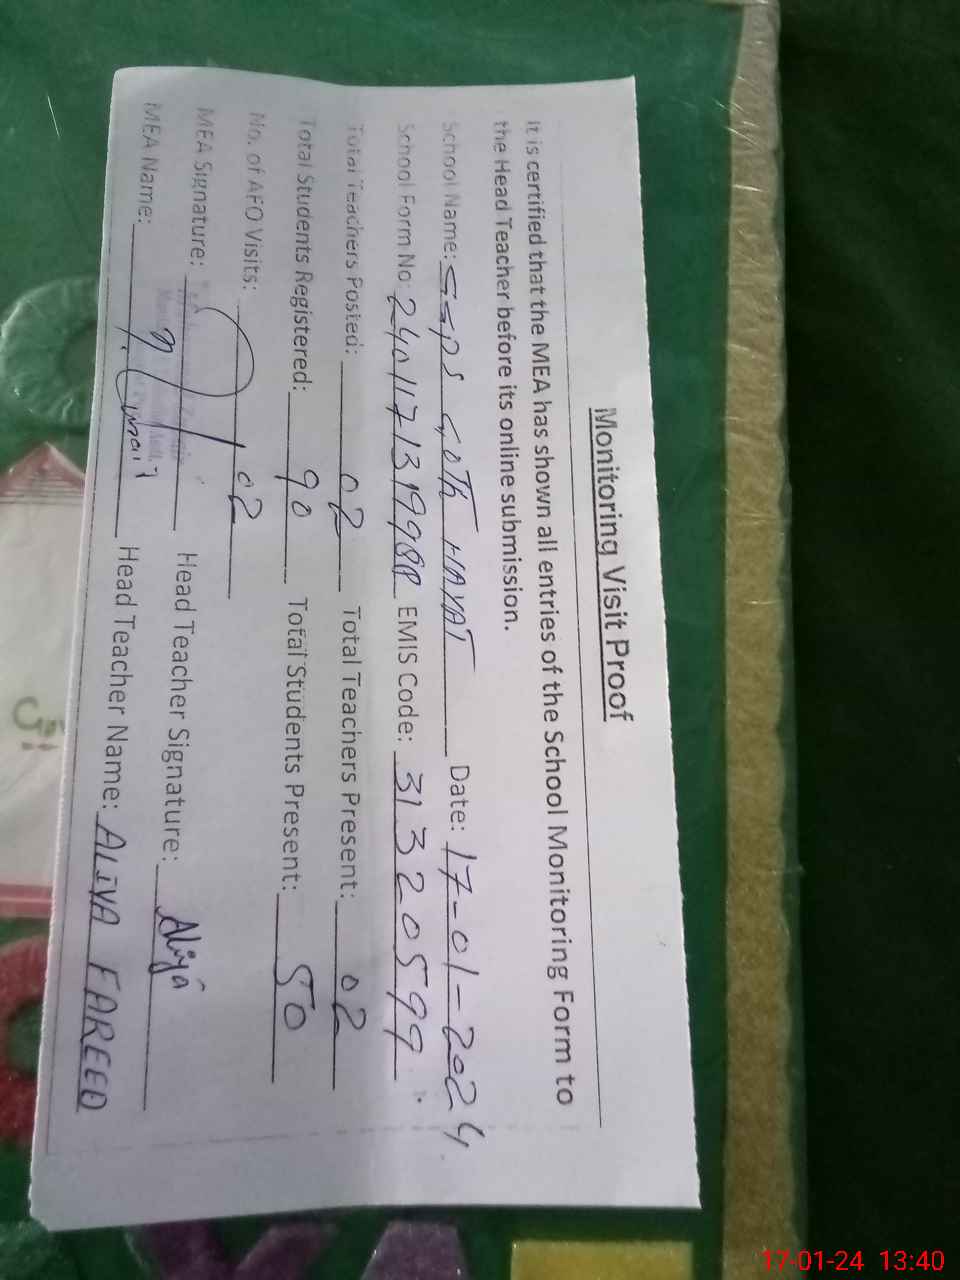 Monitoring Visit Proof
It is certified that the MEA has shown all entries of the School Monitoring Form to
the Head Teacher before its online submission.
School Name: GGPS GOTH HAYAT Date: 17-01-2024
School Form No: EMIS Code: 31320599
Total Teachers Posted: 02 Total Teachers Present: 02
Total Students Registered: 90 Total Students Present: 50
No. of AFO Visits: 02
MEA Signature: Head Teacher Signature: Aliya
MEA Name: Head Teacher Name: ALIYA FAREED
17-01-24 13:40